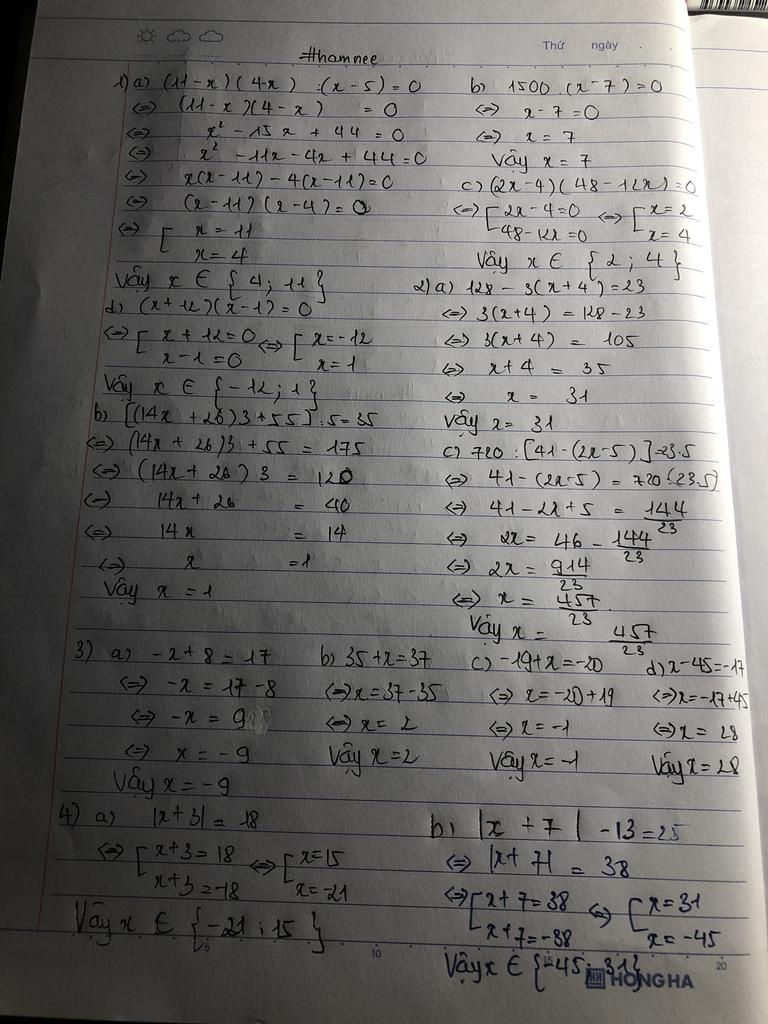 Thứ ngày
#hamnee
1) a) (11-x)(4-x) :(x-5) = 0
⇔ (11-x)(4-x) = 0
⇔ x² - 15x + 44 = 0
⇔ x² - 11x - 4x + 44 = 0
⇔ x(x-11) - 4(x-11) = 0
⇔ (x-11)(x-4) = 0
⇔ [ x = 11
x = 4
Vậy x ∈ {4; 11}
d) (x+12)(x-1) = 0
⇔ [ x+12=0 ⇔ [ x=-12
x-1=0 x=1
Vậy x ∈ {-12; 1}
b) [(14x + 26)3+55]:5=35
⇔ (14x + 26)3 + 55 = 175
⇔ (14x + 26) 3 = 120
⇔ 14x + 26 = 40
⇔ 14x = 14
⇔ x = 1
Vậy x = 1
b) 1500 . (x-7)=0
⇔ x-7=0
⇔ x = 7
Vậy x = 7
c) (2x-4)(48-12x)=0
⇔ [ 2x-4=0 ⇔ [ x=2
48-12x=0 x=4
Vậy x ∈ {2; 4}
2) a) 128 - 3(x+4)=23
⇔ 3(x+4) = 128-23
⇔ 3(x+4) = 105
⇔ x+4 = 35
⇔ x = 31
Vậy x = 31
c) 720 : [41-(2x-5)]=23.5
⇔ 41-(2x-5) = 720:(23.5)
⇔ 41-2x+5 = 144/23
⇔ 2x = 46 - 144/23
⇔ 2x = 914/23
⇔ x = 457/23
Vậy x = 457/23
3) a) -x+8=17
⇔ -x = 17-8
⇔ -x = 9
⇔ x = -9
Vậy x = -9
b) 35+x=37
⇔ x=37-35
⇔ x = 2
Vậy x=2
c) -19+x=-20
⇔ x=-20+19
⇔ x=-1
Vậy x=-1
d) x-45=-17
⇔ x=-17+45
⇔ x = 28
Vậy x=28
4) a) |x+3| = 18
⇔ [ x+3=18 ⇔ [ x=15
x+3=-18 x=-21
Vậy x ∈ {-21; 15}
b) |x+7| -13=25
⇔ |x+7| = 38
⇔ [ x+7=38 ⇔ [ x=31
x+7=-38 x=-45
Vậy x ∈ {-45; 31}
5 10 15 20
HONG HA